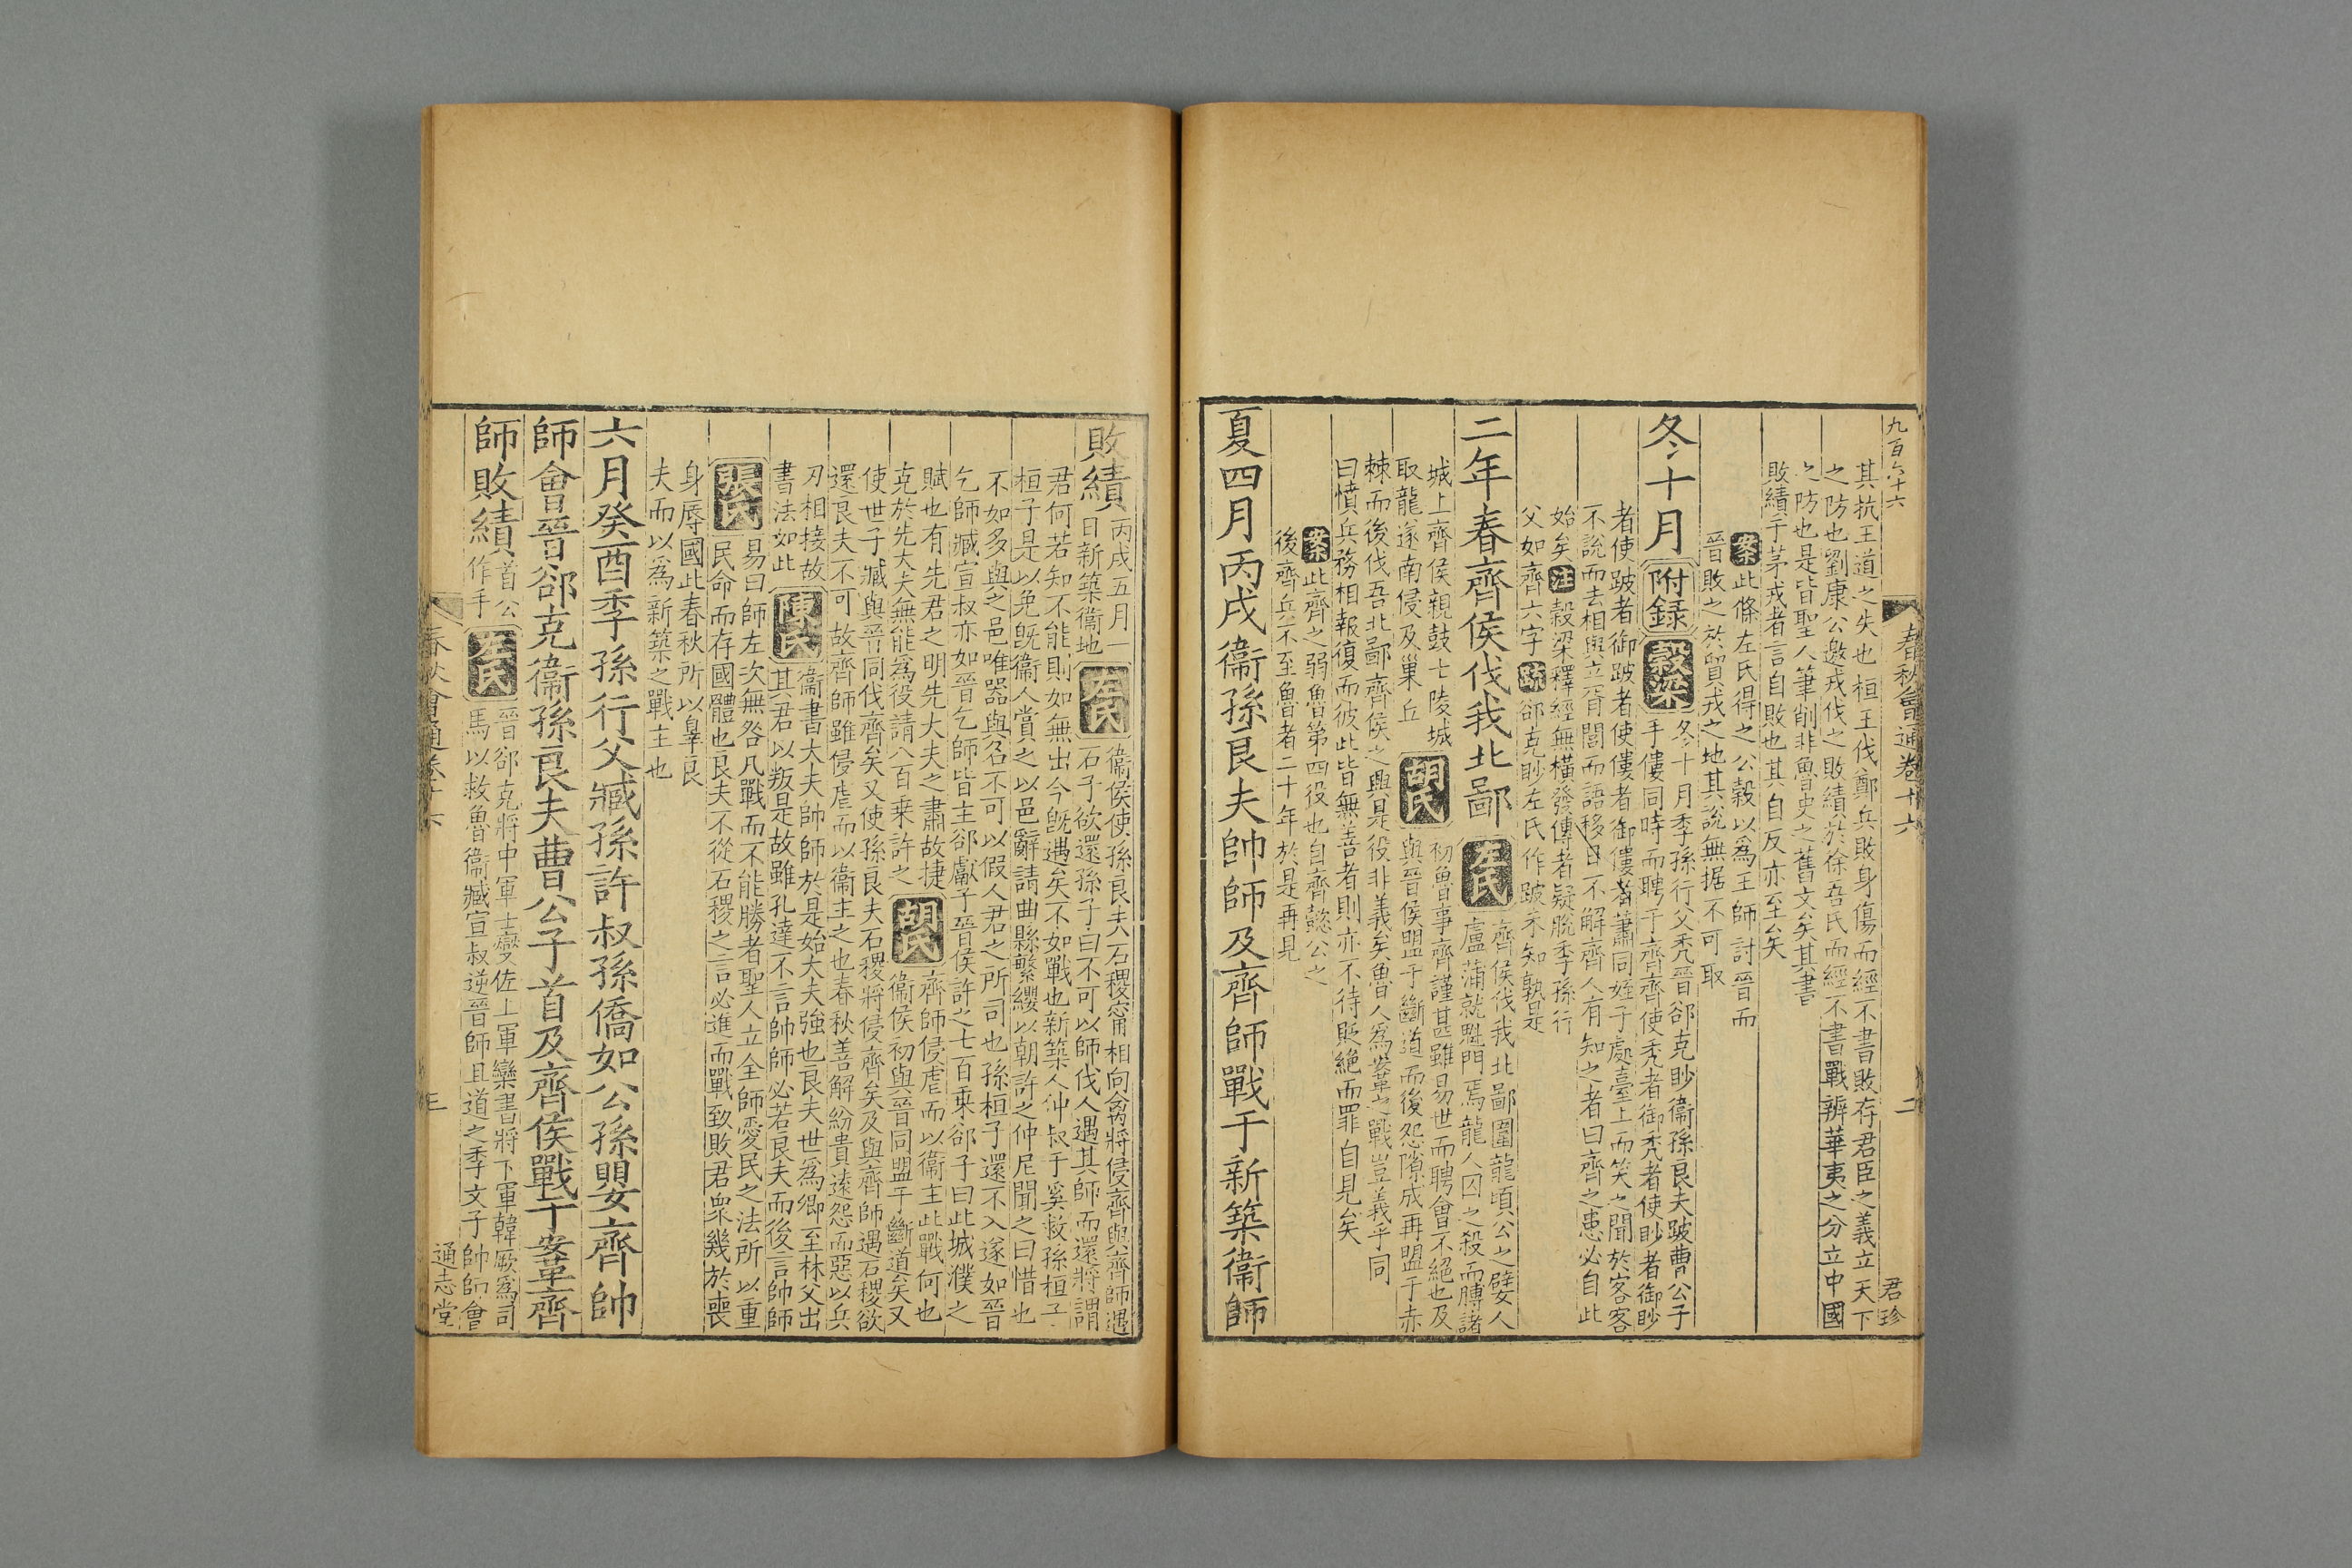 九百六十六
春秋會通卷十六
二
君珍
其抗王道之失也桓王伐鄭兵敗身傷而經不書敗存君臣之義立天下
之防也劉康公邀戎伐之敗績於徐吾氏而經不書戰辨華夷之分立中國
之防也是皆聖人筆削非魯史之舊文矣其書
敗績于茅戎者言自敗也其自反亦至矣
案此條左氏得之公穀以爲王師討晉而
晉敗之於貿戎之地其說無据不可取
冬十月附録穀梁
冬十月季孫行父禿晉郤克眇衞孫良夫跛曹公子
手僂同時而聘于齊齊使禿者御禿者使眇者御眇
者使跛者御跛者使僂者御僂者蕭同姪子處臺上而笑之聞於客客
不說而去相與立胥閭而語移日不解齊人有知之者曰齊之患必自此
始矣注穀梁釋經無橫發傳者疑脫季孫行
父如齊六字疏郤克眇左氏作跛未知孰是
二年春齊侯伐我北鄙左氏
齊侯伐我北鄙圍龍頃公之嬖人
盧蒲就魁門焉龍人囚之殺而膊諸
城上齊侯親鼓士陵城
取龍遂南侵及巢丘
胡氏
初魯事齊謹甚雖易世而聘會不絕也及
與晉侯盟于斷道而後怨隙成再盟于赤
棘而後伐吾北鄙齊侯之興是役非義矣魯人爲鞌之戰豈義乎同
曰憤兵務相報復而彼此皆無善者則亦不待貶絕而罪自見矣
案此齊之弱魯第四役也自齊懿公之
後齊兵不至魯者二十年於是再見
夏四月丙戌衞孫良夫帥師及齊師戰于新築衞師
敗績
丙戌五月一
日新築衞地
左氏
衞侯使孫良夫石稷甯相向禽將侵齊與齊師遇
石子欲還孫子曰不可以師伐人遇其師而還將謂
君何若知不能則如無出今旣遇矣不如戰也新築人仲叔于奚救孫桓子
桓子是以免旣衞人賞之以邑辭請曲縣繁纓以朝許之仲尼聞之曰惜也
不如多與之邑唯器與名不可以假人君之所司也孫桓子還不入遂如晉
乞師臧宣叔亦如晉乞師皆主郤獻子晉侯許之七百乘郤子曰此城濮之
賦也有先君之明先大夫之肅故捷
克於先大夫無能爲役請八百乘許之
胡氏
齊師侵虐而以衞主此戰何也
衞侯初與晉同盟于斷道矣又
使世子臧與晉同伐齊矣又使孫良夫石稷將侵齊矣及與齊師遇石稷欲
還良夫不可故齊師雖侵虐而以衞主之也春秋善解紛貴遠怨而惡以兵
刃相接故
書法如此
陳氏
衞書大夫帥師於是始大夫強也良夫世爲卿至林父出
其君以叛是故雖孔達不言帥師必若良夫而後言帥師
張氏
易曰師左次無咎凡戰而不能勝者聖人立全師愛民之法所以重
民命而存國體也良夫不從石稷之言必進而戰致敗君衆幾於喪
身辱國此春秋所以辠良
夫而以爲新築之戰主也
六月癸酉季孫行父臧孫許叔孫僑如公孫嬰齊帥
師會晉郤克衞孫良夫曹公子首及齊侯戰于鞌齊
師敗績
首公
作手
左氏
晉郤克將中軍士燮佐上軍欒書將下軍韓厥爲司
馬以救魯衞臧宣叔逆晉師且道之季文子帥師會
春秋會通卷十六
三
通志堂